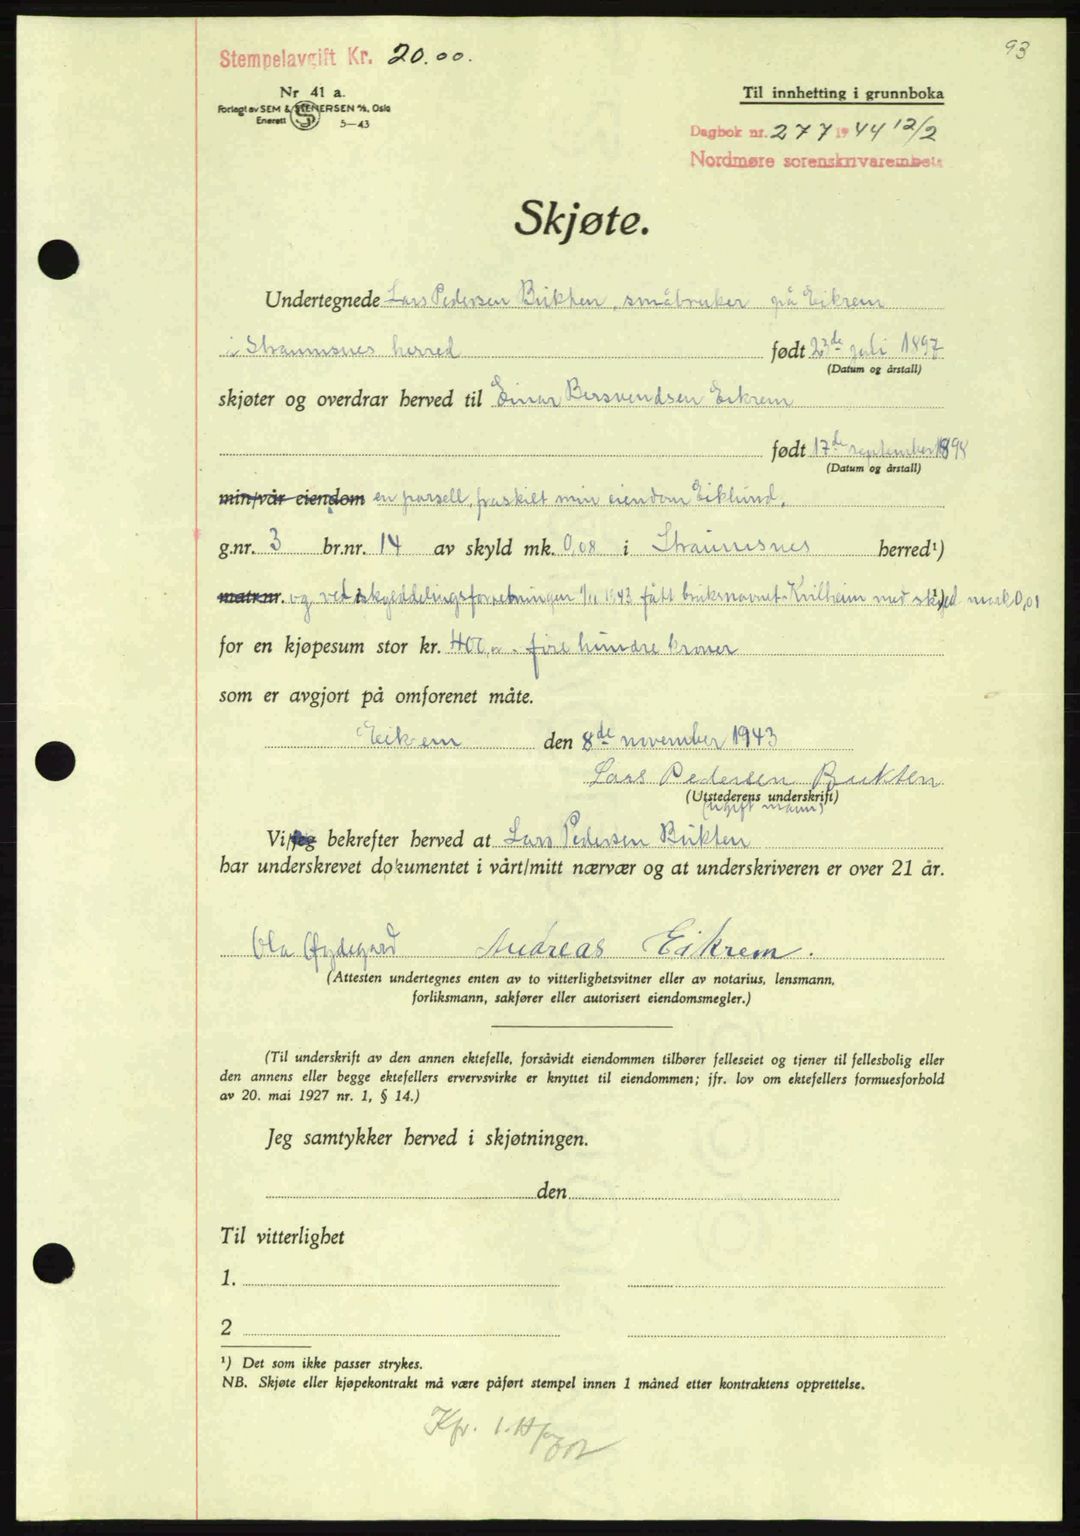 93
Stempelavgift Kr. 20.00.
Nr 41 a.
Forlagt av SEM & STENERSEN A/S, Oslo
Enerett 5—43
Til innhetting i grunnboka
Dagbok nr. 277 1944 12/2
Nordmøre sorenskrivarembete
Skjøte.
Undertegnede Lars Pedersen Bukten, småbruker på Eikrem
i Straumsnes herred født 23de juli 1897
(Datum og årstall)
skjøter og overdrar herved til Einar Bersvendsen Eikrem
født 17de september 1898
(Datum og årstall)
min/vår eiendom en parsell, fraskilt min eiendom Eiklund,
g.nr. 3 br.nr. 14 av skyld mk. 0,08 i Straumsnes herred¹)
matr.nr. og ved skylddelingsforretningen 1/11 1943 fått bruksnavnet Kvilheim med skyld mark 0,01
for en kjøpesum stor kr. 400,00 - fire hundre kroner
som er avgjort på omforenet måte.
Eikrem den 8de november 1943
Lars Pedersen Bukten
(Utstederens underskrift)
(ugift mann)
Vi/jeg bekrefter herved at Lars Pedersen Bukten
har underskrevet dokumentet i vårt/mitt nærvær og at underskriveren er over 21 år.
Ola Øydegard Andreas Eikrem.
(Attesten undertegnes enten av to vitterlighetsvitner eller av notarius, lensmann,
forliksmann, sakfører eller autorisert eiendomsmegler.)
(Til underskrift av den annen ektefelle, forsåvidt eiendommen tilhører felleseiet og tjener til fellesbolig eller
den annens eller begge ektefellers ervervsvirke er knyttet til eiendommen; jfr. lov om ektefellers formuesforhold
av 20. mai 1927 nr. 1, § 14.)
Jeg samtykker herved i skjøtningen.
den
Til vitterlighet
1.
2
¹) Det som ikke passer strykes.
NB. Skjøte eller kjøpekontrakt må være påført stempel innen 1 måned etter kontraktens opprettelse.
Kfr.